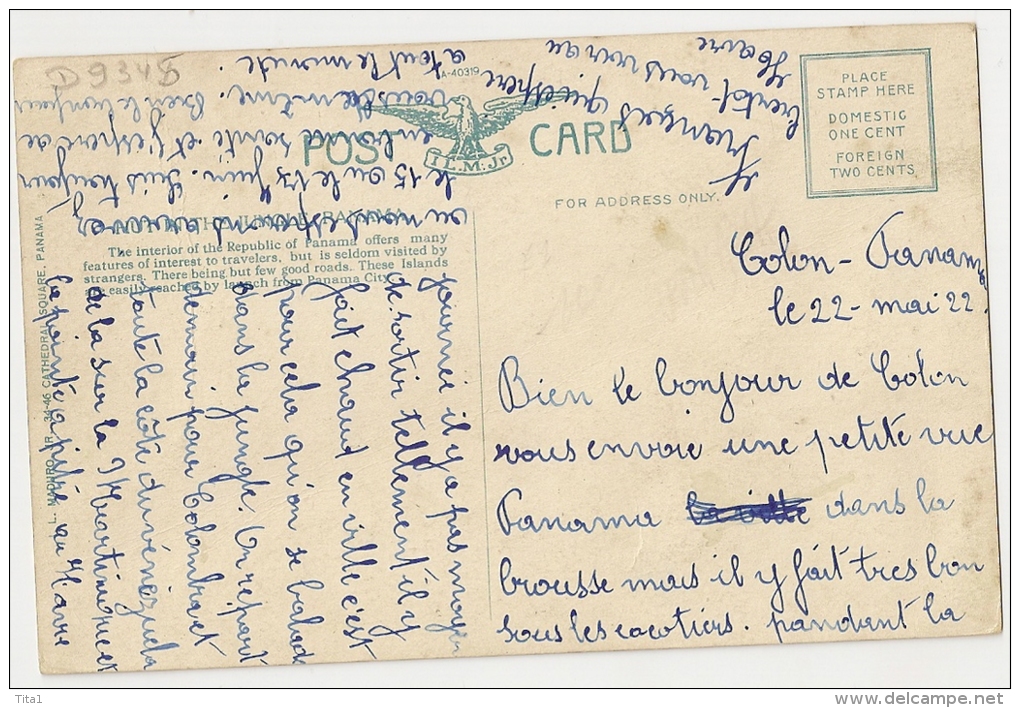 D 9348
A-40319
POST CARD
I.L.M.Jr.
PLACE
STAMP HERE
DOMESTIC
ONE CENT
FOREIGN
TWO CENTS
FOR ADDRESS ONLY.
JUNGLE, PANAMA
The interior of the Republic of Panama offers many
features of interest to travelers, but is seldom visited by
strangers. There being but few good roads. These Islands
are easily reached by launch from Panama City.
L. MADURO JR. 34-46 CATHEDRAL SQUARE, PANAMA
Colon - Panama
le 22 - mai 22.
Bien le bonjour de Colon
vous envoie une petite vue
Panama la ville dans la
brousse mais il y fait tres bon
sous les cocotiers. pandant la
journei il y a pas moyen
de sortir tellement il y
fait chaud en ville c'est
pour cela qu'on se balade
dans la jungle. On repart
demain pour Colomb et
toute la côte du vénézuela
de la sur la Martinique et
la pointe a pitre au Havre
le 15 ou le 17 Juin. Suis toujour
en bonne santé et j'espere de
vous de même. Bien le bonjour
a tout le monde.
François qui espere
bientot vous voir au
Havre
Tita1
www.delcampe.net